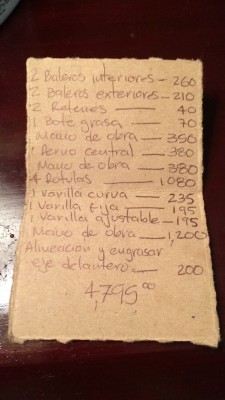 2 Baleros interiores — 260
2 Baleros exteriores — 210
2 Retenes — 40
1 Bote grasa — 70
Mano de obra — 350
1 Perno central — 380
Mano de obra — 380
4 Rotulas — 1080
1 Varilla curva — 235
1 Varilla fija — 195
1 Varilla ajustable — 195
Mano de obra — 1,200
Alineacion y engrasar
eje delantero — 200
4,795 00